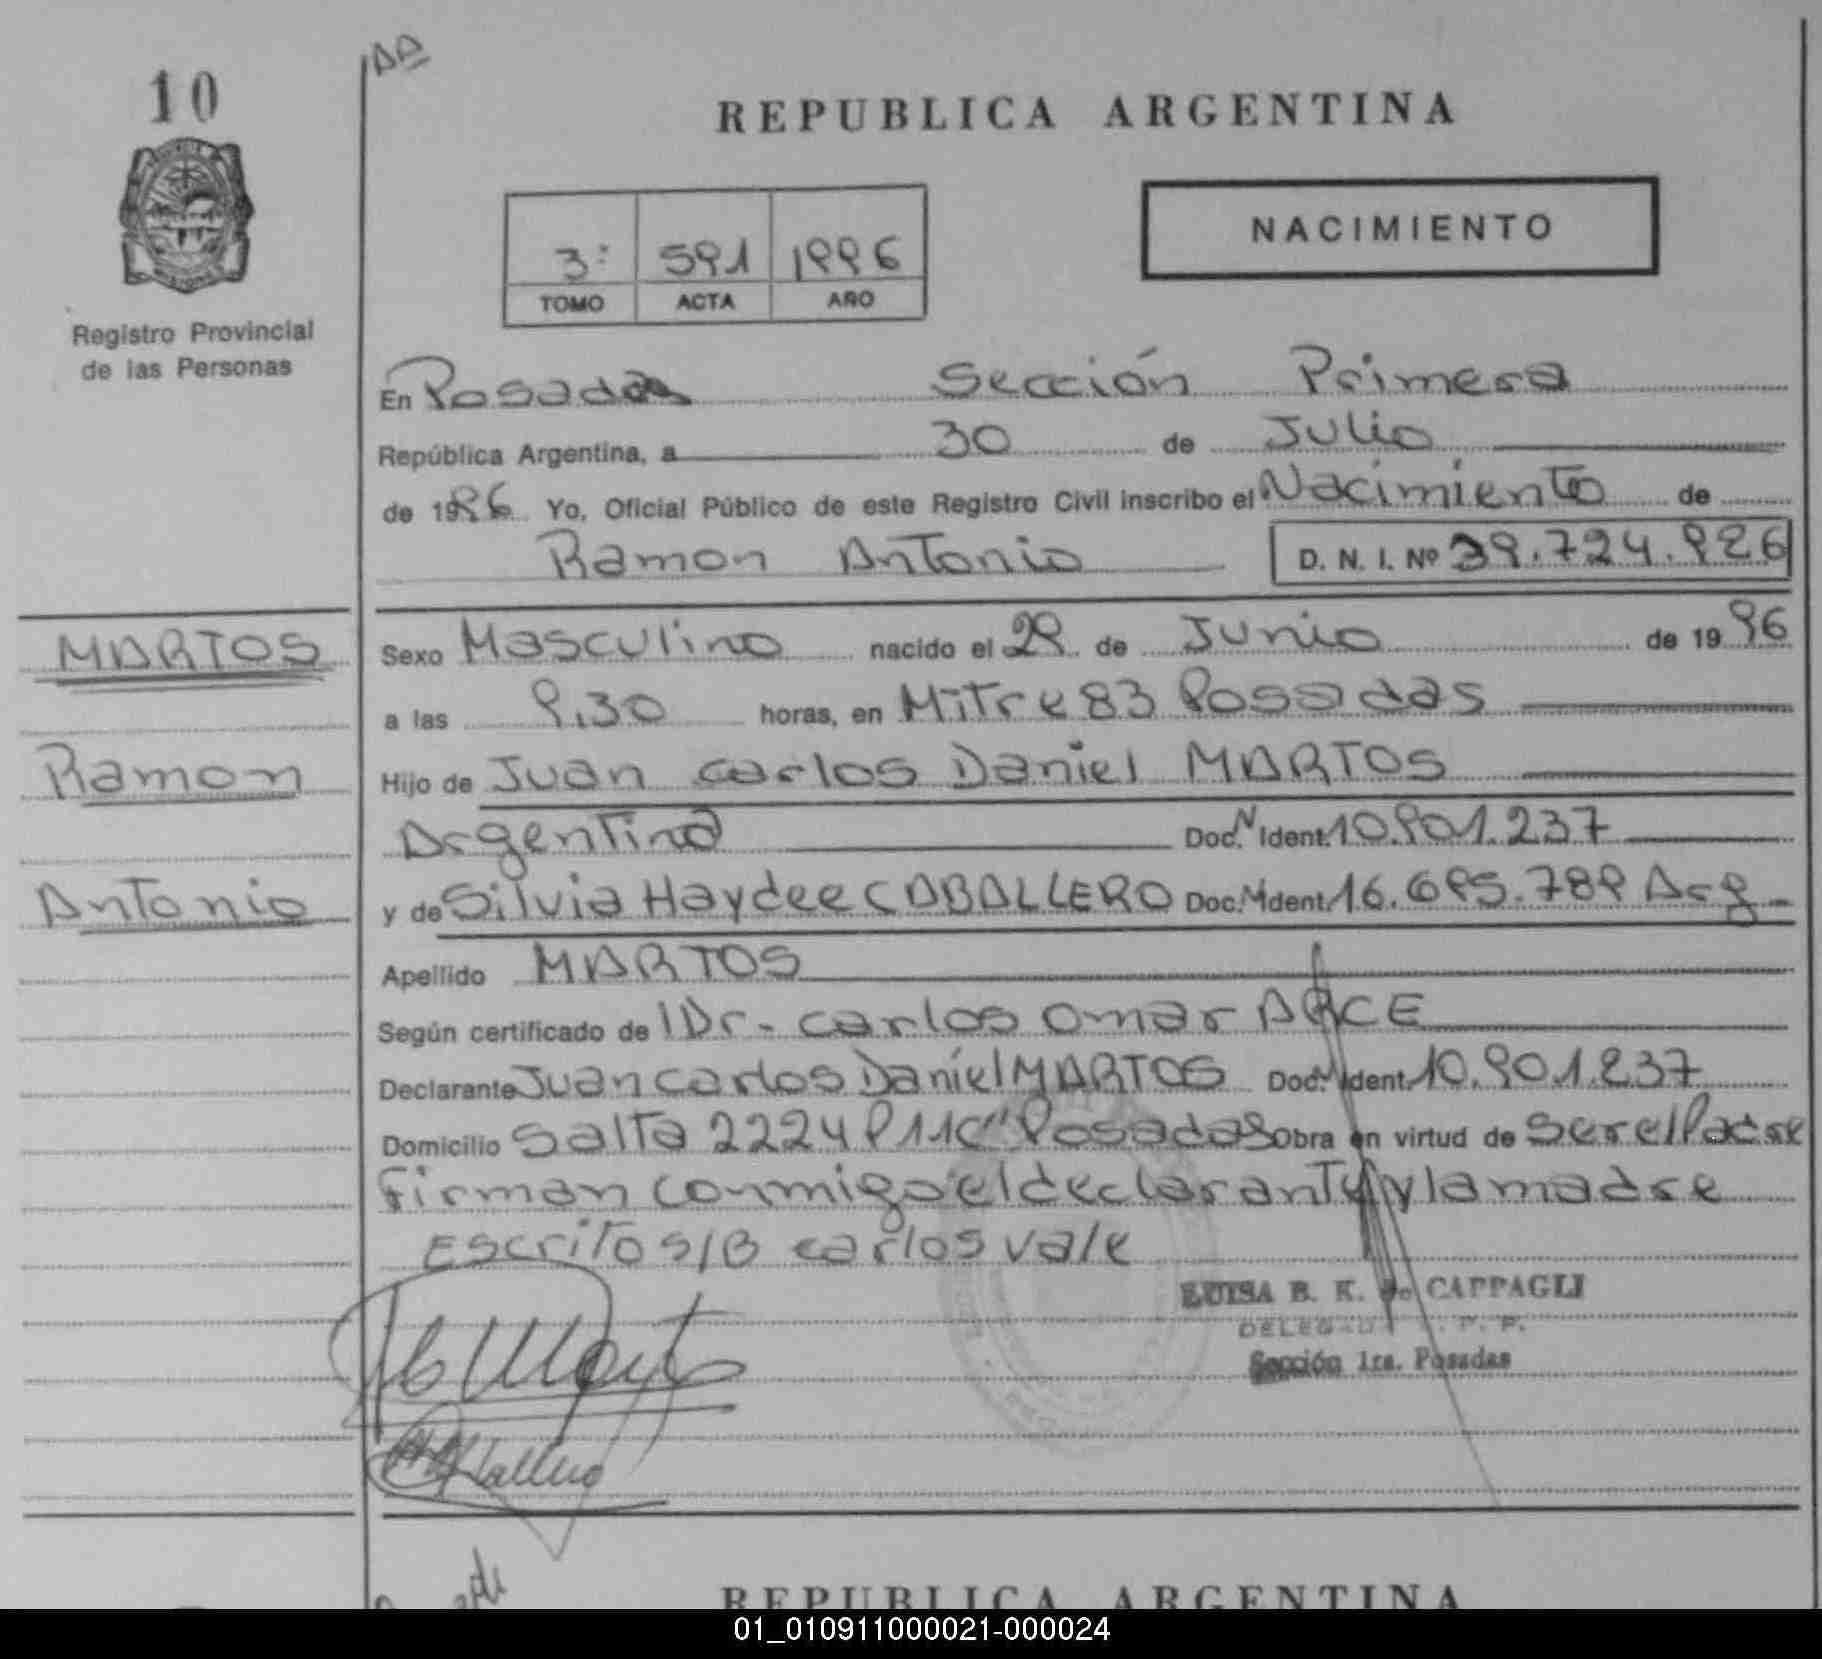 10
REPUBLICA ARGENTINA
NACIMIENTO
3: 591 1996
TOMO ACTA AÑO
Registro Provincial
de las Personas
En Posadas Sección Primera
República Argentina, a 30 de Julio
de 1996 Yo, Oficial Público de este Registro Civil inscribo el Nacimiento de
Ramon Antonio D. N. I. Nº 39.724.926
MARTOS
Ramon
Antonio
Sexo Masculino nacido el 29 de Junio de 1996
a las 9,30 horas, en Mitre 83 Posadas
Hijo de Juan Carlos Daniel MARTOS
Argentino Doc. N Ident. 10.901.237
y de Silvia Haydee CABALLERO Doc. N Ident. 16.695.789 Arg
Apellido MARTOS
Según certificado de Dr. Carlos Omar ARCE
Declarante Juan Carlos Daniel MARTOS Doc. N Ident. 10.901.237
Domicilio Salta 2224 P11C" Posadas Obra en virtud de Ser el Padre
Firman conmigo el declarante y la madre
Escrito S/B Carlos vale
LUISA B. K. de CAPPAGLI
DELEGADA R. P. P.
Sección 1ra. Posadas
REPUBLICA ARGENTINA
01_010911000021-000024